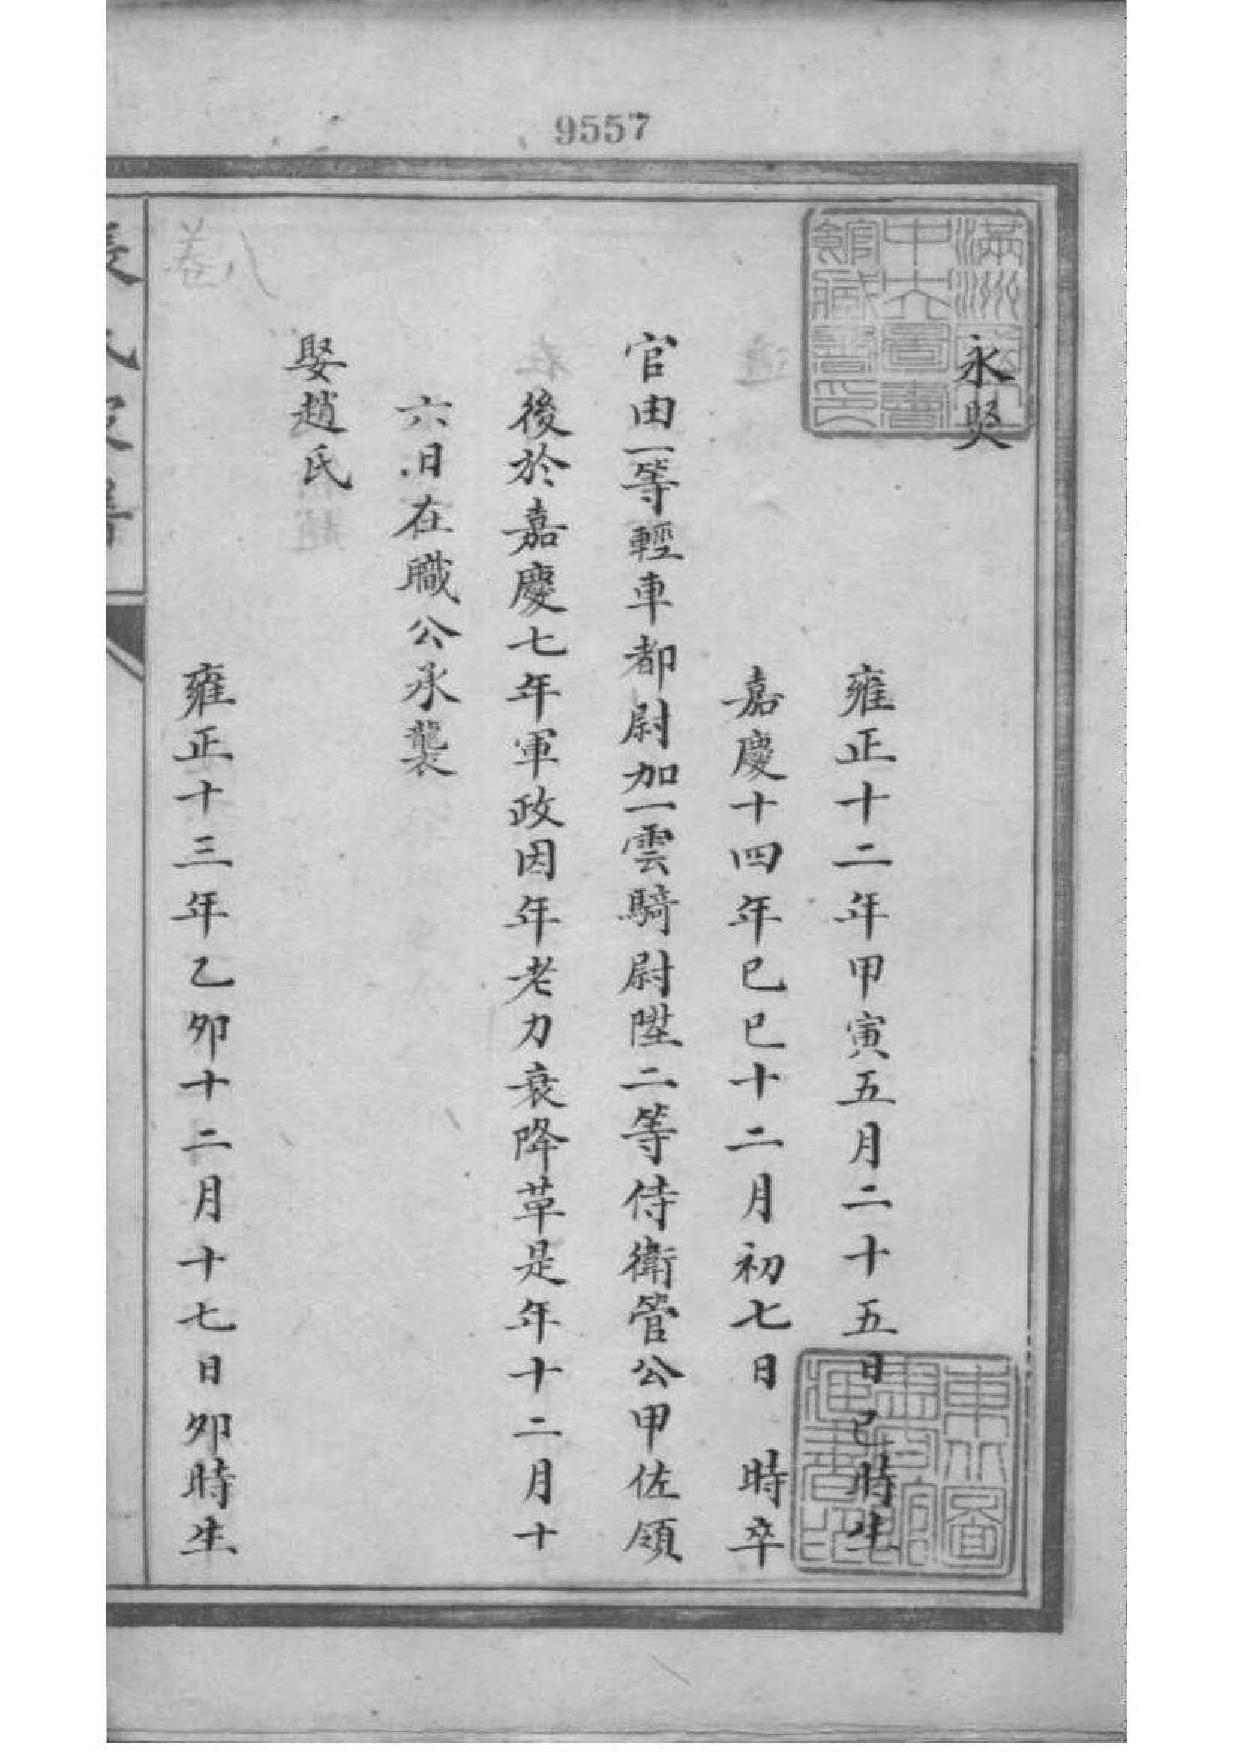 9557
滿洲國
中央圖書
館藏書印
永㷡
雍正十二年甲寅五月二十五日巳時生
嘉慶十四年己巳十二月初七日 時卒
官由一等輕車都尉加一雲騎尉陞二等侍衛管公甲佐領
後於嘉慶七年軍政因年老力衰降革是年十二月十
六日在職公承襲
娶趙氏
雍正十三年乙卯十二月十七日卯時生
卷八
氏家譜
東北圖
書館所
藏書印